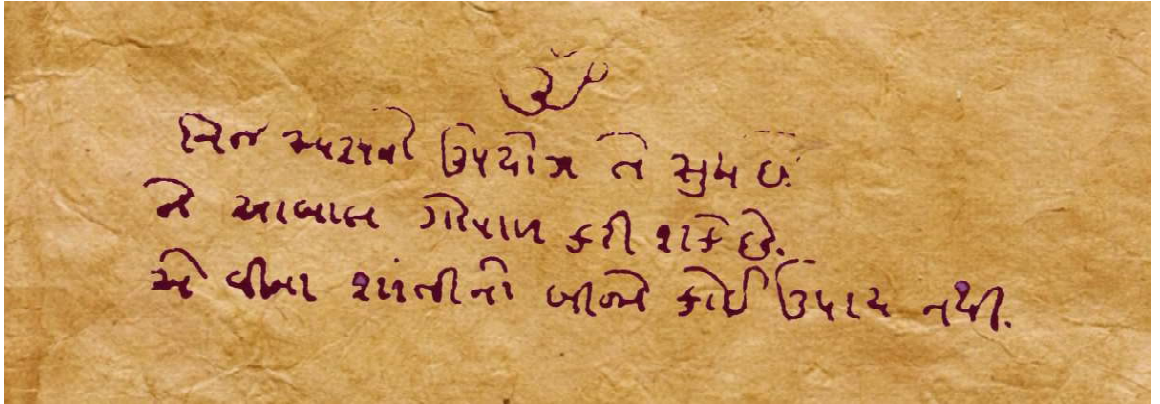 ૐ
ઉપયોગ તે સુખ છે.
ને આબાલ ગોપાળ કરી શકે છે.
એ વીના શાંતીનો બીજો કોઈ ઉપાય નથી.